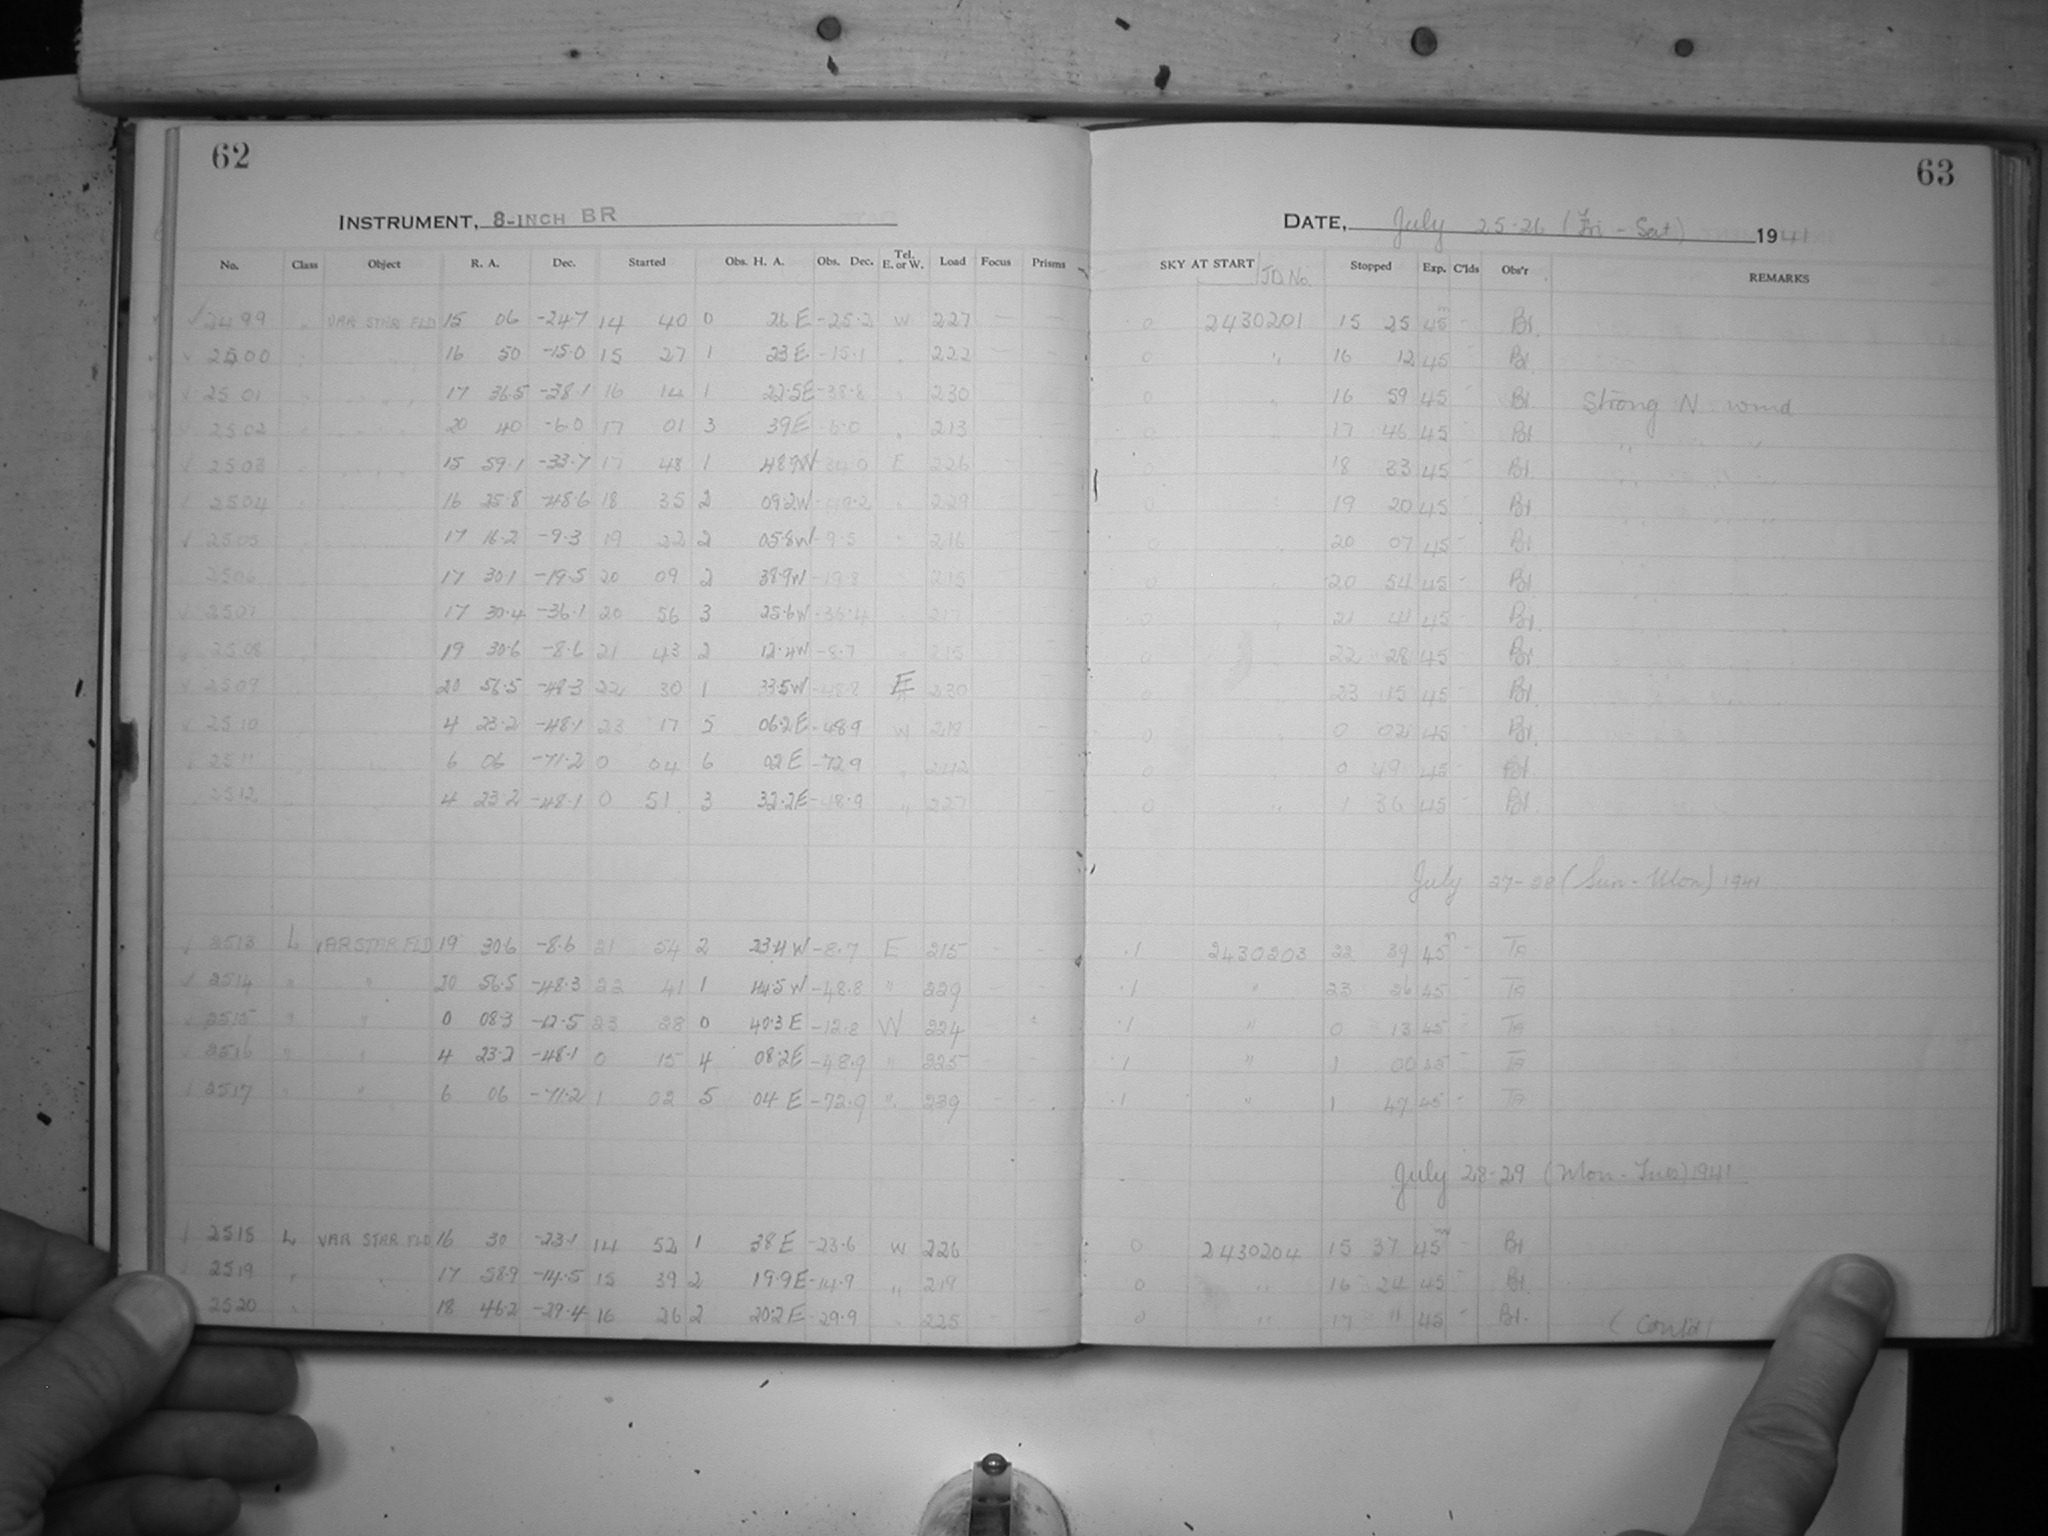 62
63
INSTRUMENT, 8-INCH BR
DATE, July 25-26 (Fri - Sat) 1941
No. Class Object R. A. Dec. Started Obs. H. A. Obs. Dec. Tel. E. or W. Load Focus Prisms SKY AT START JD No. Stopped Exp. C'lds Obs'r REMARKS
✓ 2499 " VAR STAR FLD 15 06 -24.7 14 40 0 26 E -25.2 W 227 - - 0 2430201 15 25 45m - Bl.
✓ 2500 " " 16 50 -15.0 15 27 1 23 E -15.1 " 222 0 " 16 12 45 Bl.
✓ 2501 " " 17 36.5 -38.1 16 14 1 22.5E -38.8 " 230 0 " 16 59 45 Bl. Strong N. wind
✓ 2502 " " 20 40 -6.0 17 01 3 39 E -6.0 " 213 0 " 17 46 45 Bl. " " "
✓ 2503 " " 15 59.1 -33.7 17 48 1 48.9W -34.0 E 226 18 33 45 Bl.
✓ 2504 16 25.8 -48.6 18 35 2 09.2W -49.2 229 0 19 20 45 Bl
✓ 2505 17 16.2 -9.3 19 22 2 05.8W -9.5 216 0 20 07 45 Bl
2506 17 30.1 -19.5 20 09 2 38.9W -19.8 215 0 20 54 45 Bl
✓ 2507 17 30.4 -36.1 20 56 3 25.6W -36.4 217 0 21 41 45 Bl.
2508 19 30.6 -8.6 21 43 2 12.4W -8.7 215 0 22 28 45 Bl
✓ 2509 20 56.5 -48.3 22 30 1 33.5W -48.8 E 230 0 23 15 45 Bl.
✓ 2510 4 23.2 -48.1 23 17 5 06.2E -48.9 W 218 0 0 02 45 Bl.
2511 6 06 -71.2 0 04 6 02 E -72.9 " 242 0 0 49 45 Bl.
2512 4 23.2 -48.1 0 51 3 32.2E -48.9 " 227 0 " 1 36 45 Bl.
July 27-28 (Sun - Mon) 1941
✓ 2513 L VAR STAR FLD 19 30.6 -8.6 21 54 2 23.4 W -8.7 E 215 - - .1 2430203 22 39 45m - TB
✓ 2514 " " 20 56.5 -48.3 22 41 1 44.5 W -48.8 " 229 - - .1 " 23 26 45 - TB
✓ 2515 " " 0 08.3 -12.5 23 28 0 40.3 E -12.8 W 224 .1 " 0 13 45 - TB
2516 " " 4 23.2 -48.1 0 15 4 08.2E -48.9 " 225 .1 " 1 00 45 - TB
2517 " " 6 06 -71.2 1 02 5 04 E -72.9 " 239 - - .1 " 1 47 45 - TB
July 28-29 (Mon - Tues) 1941
2515 L VAR STAR FLD 16 30 -23.1 14 52 1 38 E -23.6 W 226 0 2430204 15 37 45m - Bl
2519 " " 17 58.9 -14.5 15 39 2 19.9E -14.9 " 219 0 " 16 24 45 Bl.
2520 " " 18 46.2 -29.4 16 26 2 20.2 E -29.9 " 225 0 " 17 11 45 - Bl. (Contd)